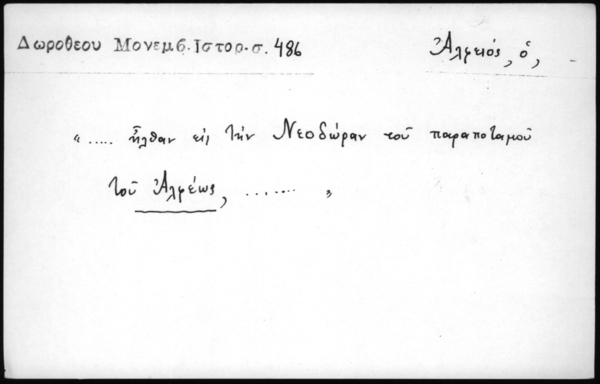 Δωροθεου Μονεμβ. Ιστορ. σ. 486
Ἀλφειός, ὁ,
« ..... ἦλθαν εἰς τὴν Νεοδώραν τοῦ παραποτάμου
τοῦ Ἀλφέως, ....... »